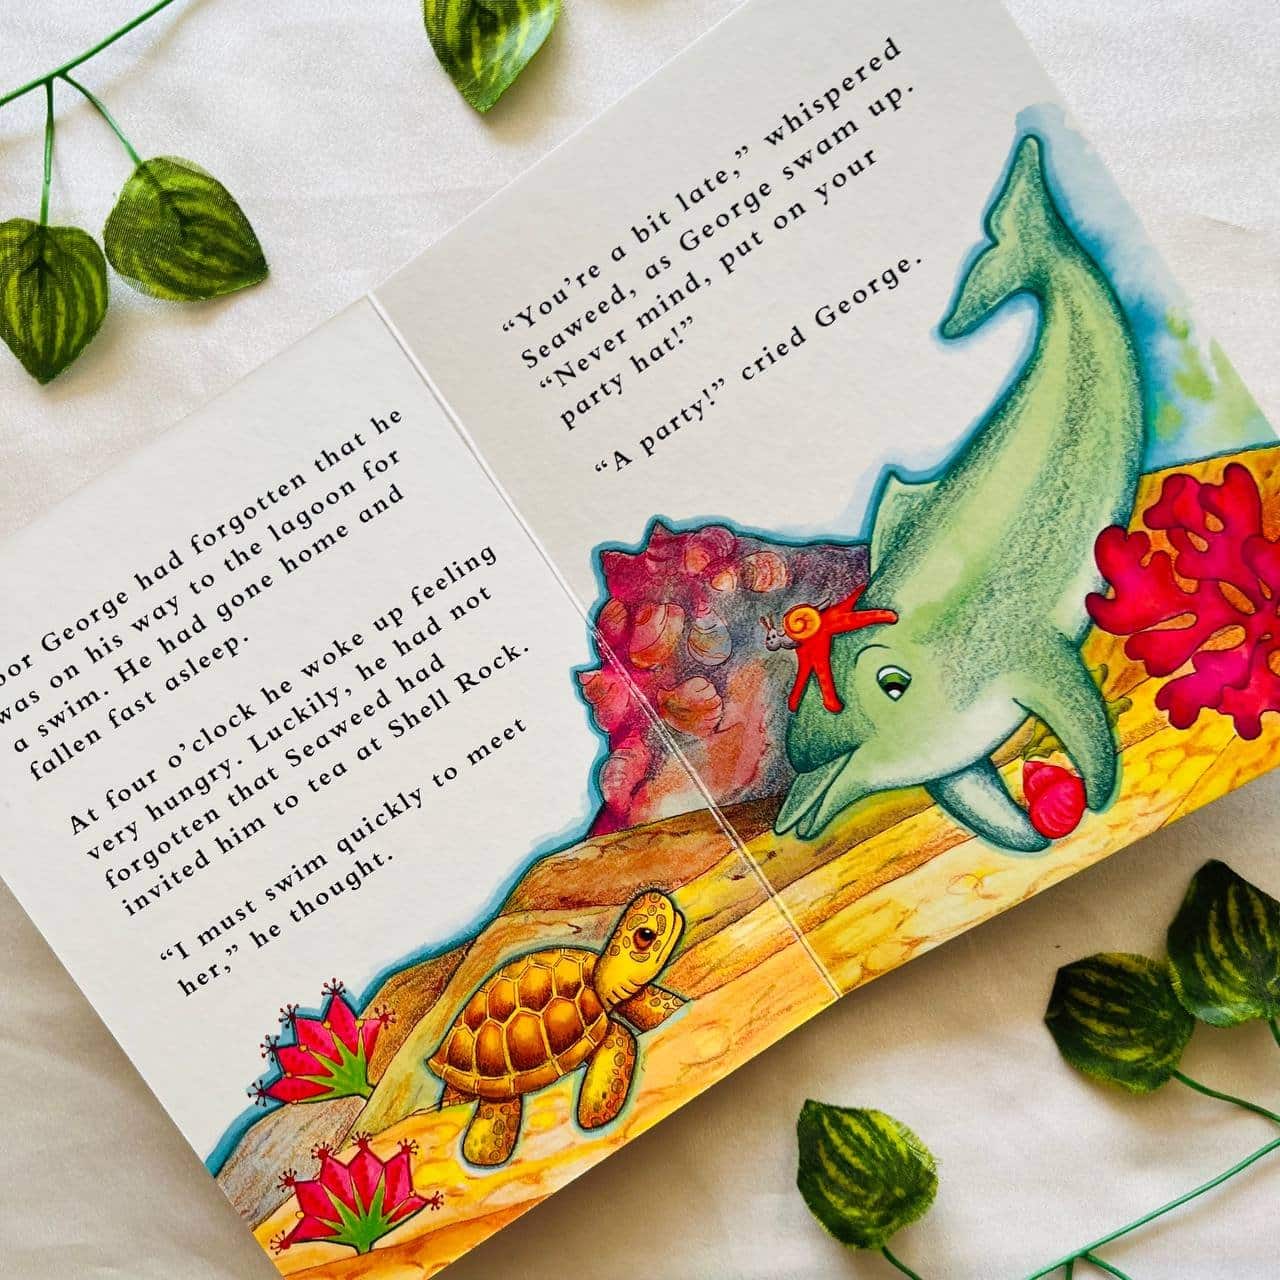 George had forgotten that he
was on his way to the lagoon for
a swim. He had gone home and
fallen fast asleep.
At four o’clock he woke up feeling
very hungry. Luckily, he had not
forgotten that Seaweed had
invited him to tea at Shell Rock.
“I must swim quickly to meet
her,” he thought.
“You’re a bit late,” whispered
Seaweed, as George swam up.
“Never mind, put on your
party hat!”
“A party!” cried George.